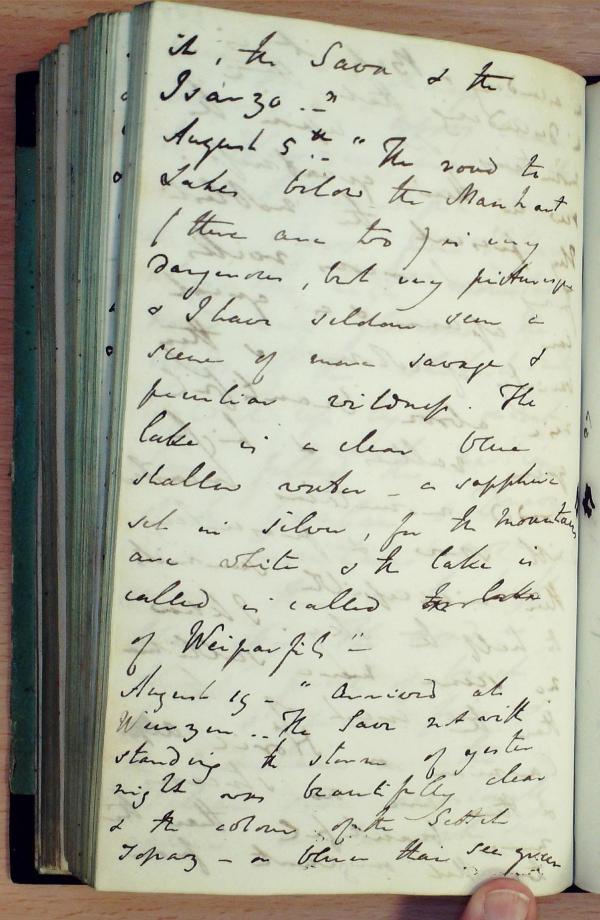 it, the Sava & the
Isanzo. —"
August 5th.. "The road to
Lakes below the Manhart
(there are two) is very
dangerous, but very picturesque
& I have seldom seen a
scene of more savage &
peculiar wildness. The
lake is a clear blue
shallow water – a sapphire
set in silver, for the mountains
are white & the lake is
called is called the lake
of Weissenfels" –
August 19 – "arrived at
Wurzen.. The Save notwith
standing the storm of yester
night was beautifully clear
& the colour of the Scotch
Topaz – a bluer than sea green